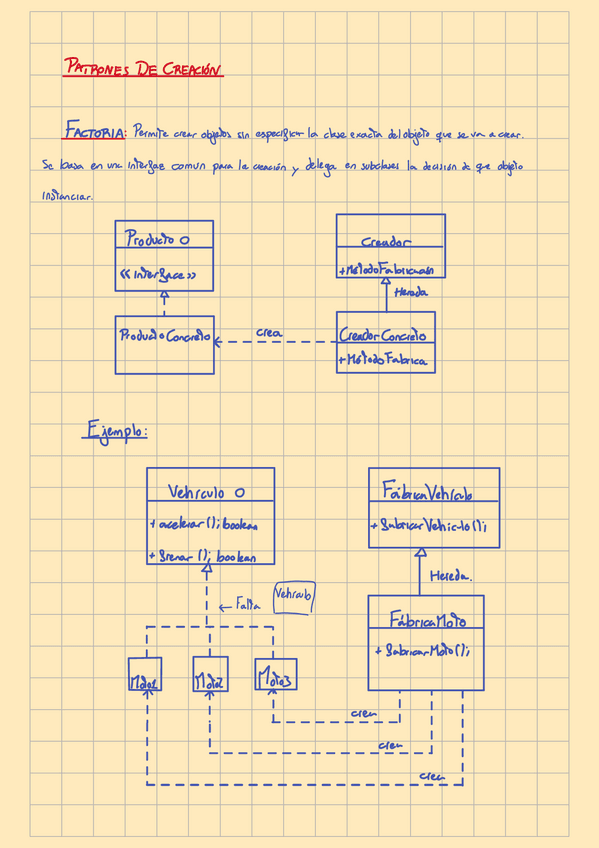 PATRONES DE CREACIÓN
FACTORIA: Permite crear objetos sin especificar la clase exacta del objeto que se va a crear.
Se basa en una interfaz comun para la creación y delega en subclases la decisión de que objeto
instanciar.
Producto O
<<interface>>
Creador
+MétodoFabricación
Hereda
ProductoConcreto
crea
CreadorConcreto
+MétodoFabrica
Ejemplo:
Vehículo O
+ acelerar(); boolean
+ frenar(); boolean
FábricaVehículo
+ fabricarVehiculo();
Hereda.
← Falta
Vehículo
FábricaMoto
+ fabricarMoto();
Moto1
Moto2
Moto3
crea
crea
crea